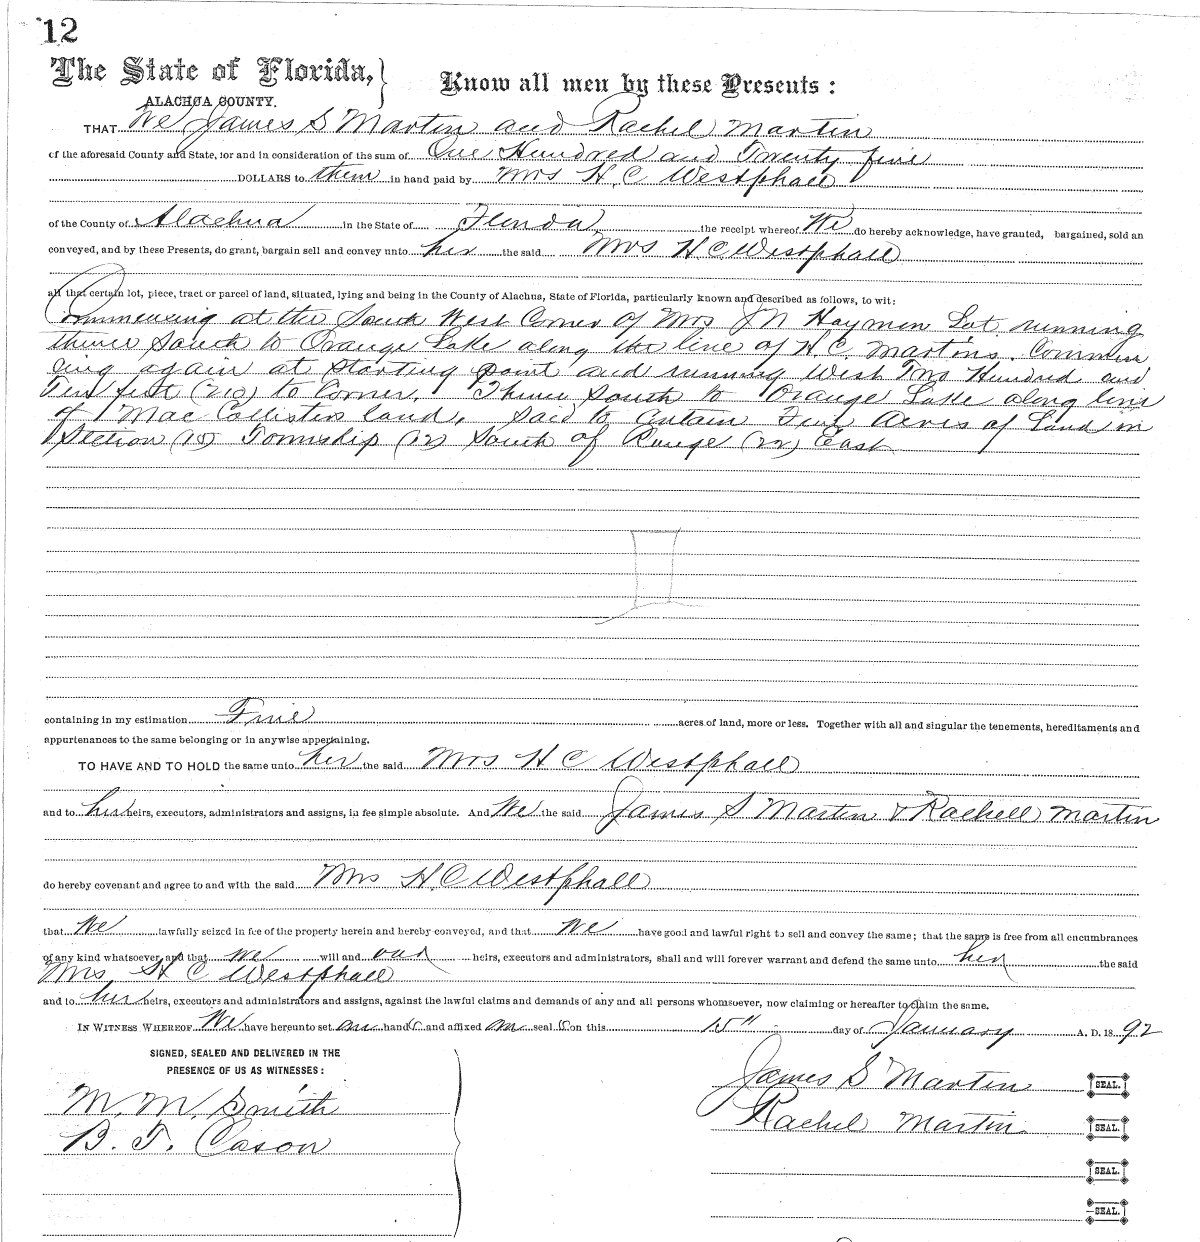 12
The State of Florida, } Know all men by these Presents :
ALACHUA COUNTY.
THAT We James S Martin and Rachel Martin
of the aforesaid County and State, for and in consideration of the sum of One Hundred and Twenty five
DOLLARS to them in hand paid by Mrs H. C Westphall
of the County of Alachua in the State of Florida the receipt whereof We do hereby acknowledge, have granted, bargained, sold an
conveyed, and by these Presents, do grant, bargain sell and convey unto her the said Mrs H C. Westphall
all that certain lot, piece, tract or parcel of land, situated, lying and being in the County of Alachua, State of Florida, particularly known and described as follows, to wit:
Commencing at the South West Corner of Mrs J N Haymen Lot running
thence South to Orange Lake along the line of H. C. Martins. Commen
cing again at starting point and running West Two Hundred and
Ten feet (210) to Corner. Thence South to Orange Lake along line
of Mac Collisters land, Said to Contain Five Acres of Land in
Section (15) Township (12) South of Range (22) East
containing in my estimation Five acres of land, more or less. Together with all and singular the tenements, hereditaments and
appurtenances to the same belonging or in anywise appertaining.
TO HAVE AND TO HOLD the same unto her the said Mrs H C Westphall
and to her heirs, executors, administrators and assigns, in fee simple absolute. And We the said James S Martin & Rachell Martin
do hereby covenant and agree to and with the said Mrs H. C Westphall
that We lawfully seized in fee of the property herein and hereby conveyed, and that We have good and lawful right to sell and convey the same; that the same is free from all encumbrances
of any kind whatsoever, and that we will and our heirs, executors and administrators, shall and will forever warrant and defend the same unto her the said
Mrs H C Westphall
and to her heirs, executors and administrators and assigns, against the lawful claims and demands of any and all persons whomsoever, now claiming or hereafter to claim the same.
IN WITNESS WHEREOF We have hereunto set our hands and affixed our seals on this 15" day of January A. D. 18 92
SIGNED, SEALED AND DELIVERED IN THE
PRESENCE OF US AS WITNESSES :
James S Martin SEAL.
M. M. Smith
Rachel Martin SEAL.
B. T. Cason
SEAL.
SEAL.